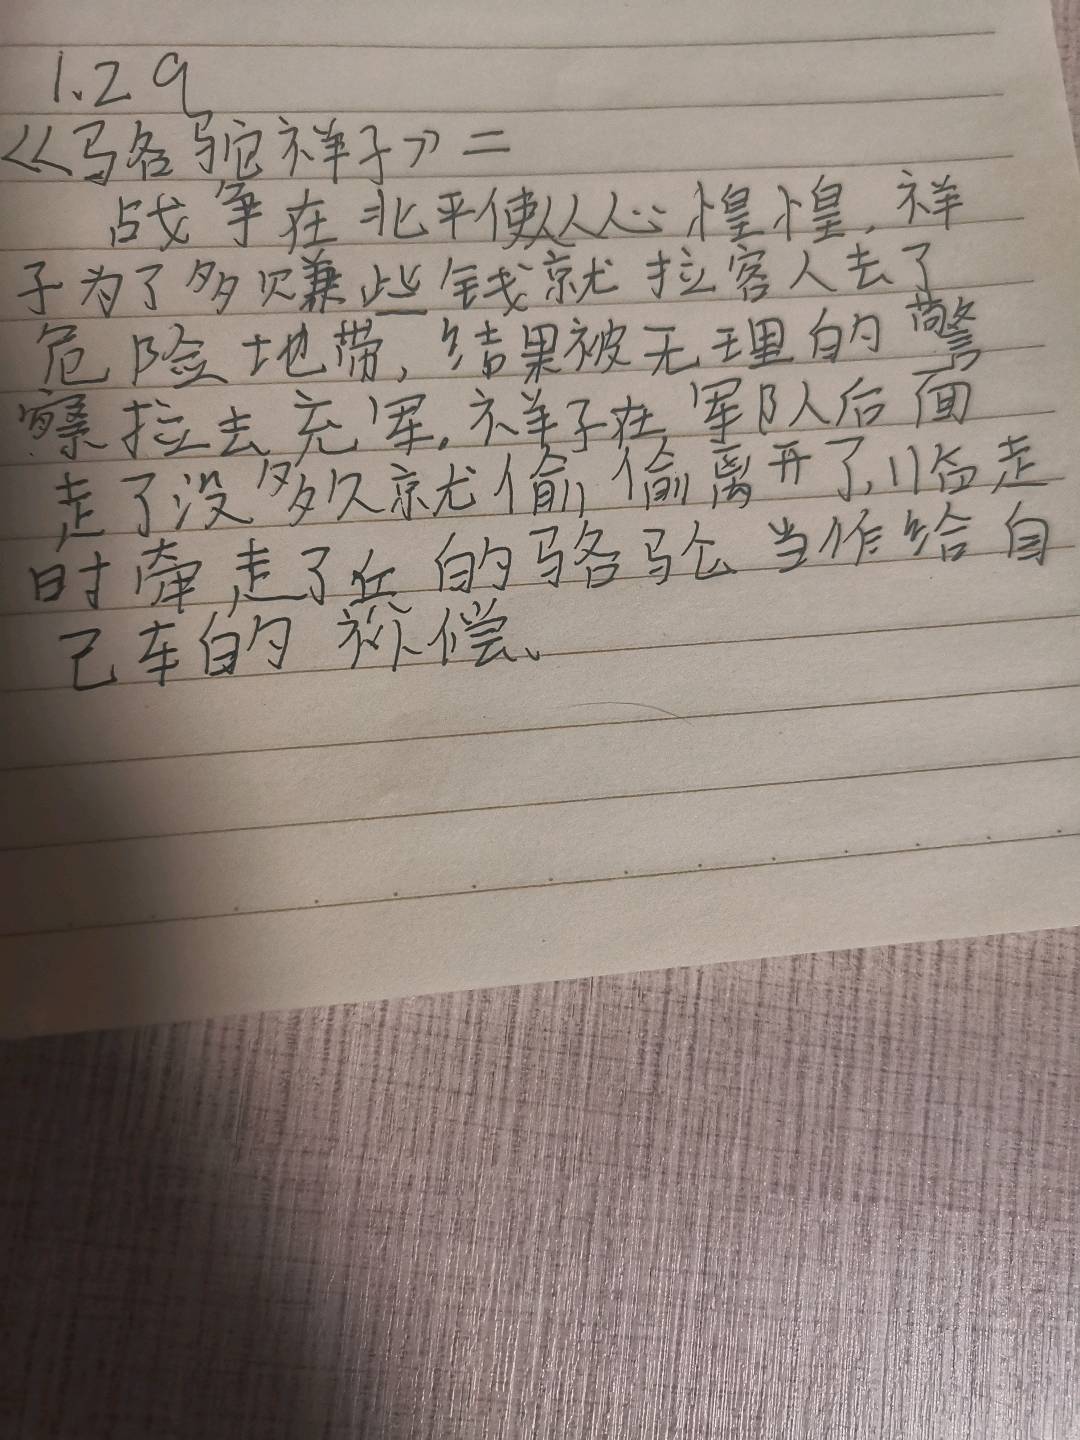 1.29
《骆驼祥子》二
战争在北平使人人心惶惶,祥
子为了多赚些钱就拉客人去了
危险地带,结果被无理的警
察拉去充军,祥子在军队后面
走了没多久就偷偷离开了,临走
时牵走了兵的骆驼当作给自
己车的补偿、